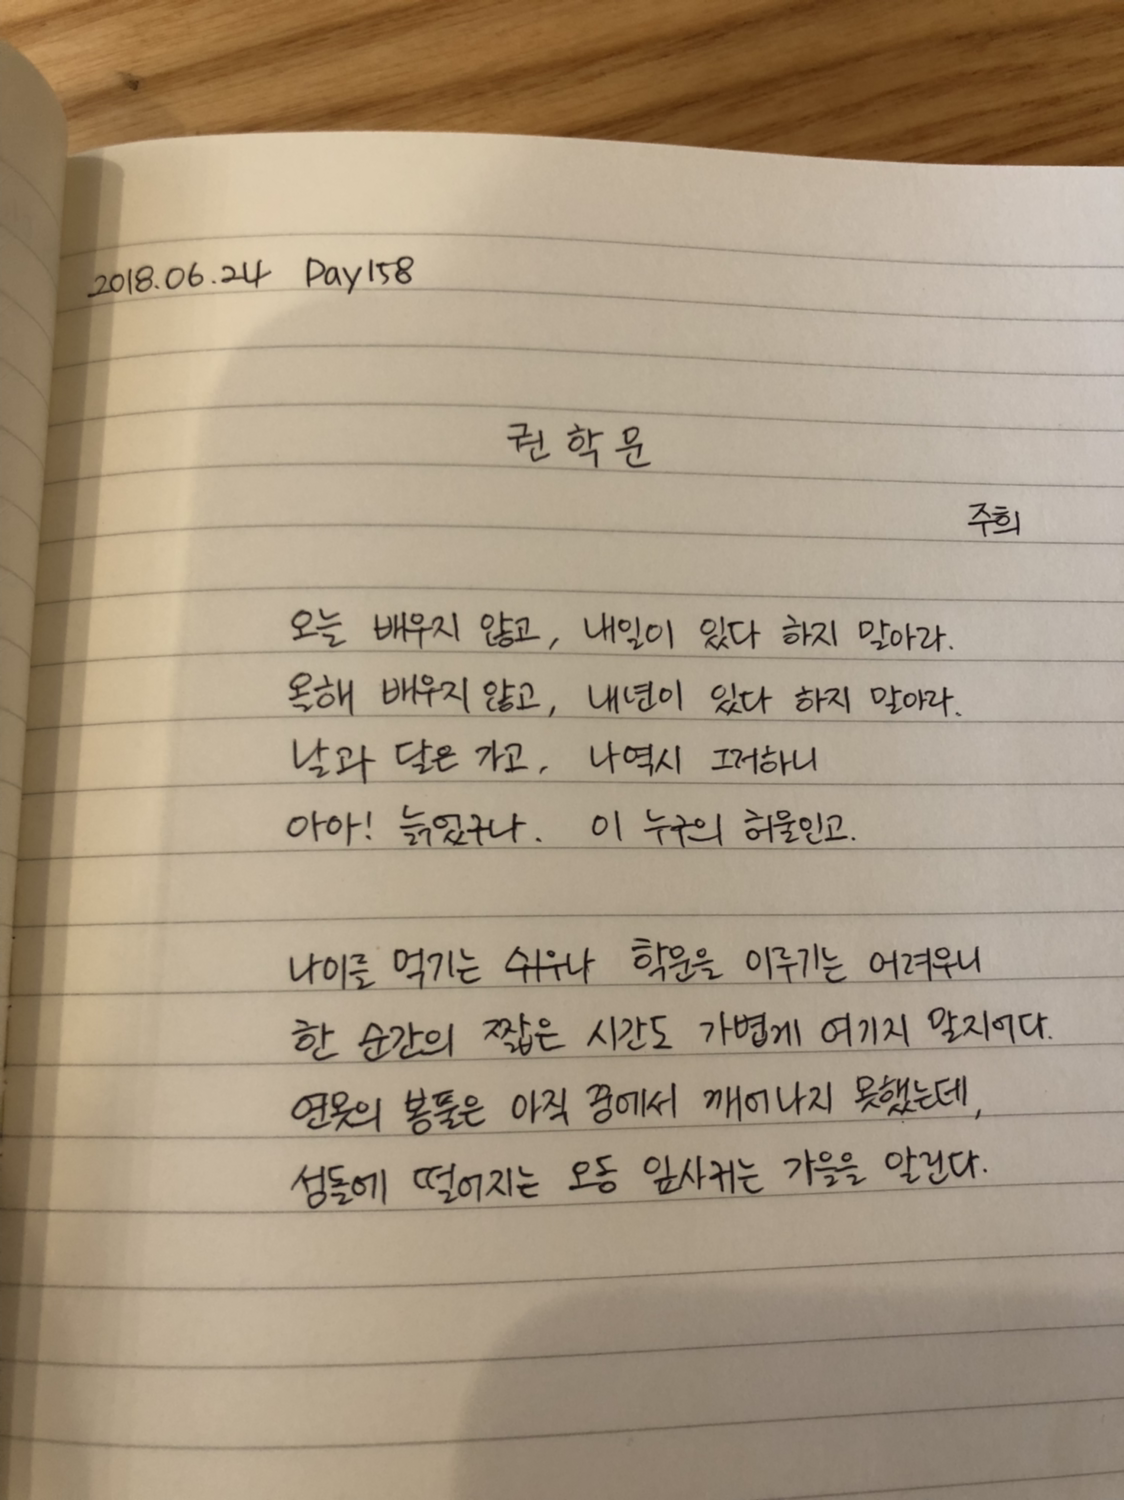 2018.06.24 Day158
권학문
주희
오늘 배우지 않고, 내일이 있다 하지 말아라.
올해 배우지 않고, 내년이 있다 하지 말아라.
날과 달은 가고, 나 역시 그러하니
아아! 늙었구나. 이 누구의 허물인고.
나이를 먹기는 쉬우나 학문을 이루기는 어려우니
한 순간의 짧은 시간도 가볍게 여기지 말지어다.
연못의 봉풀은 아직 꿈에서 깨어나지 못했는데,
섬돌에 떨어지는 오동 잎사귀는 가을을 알린다.